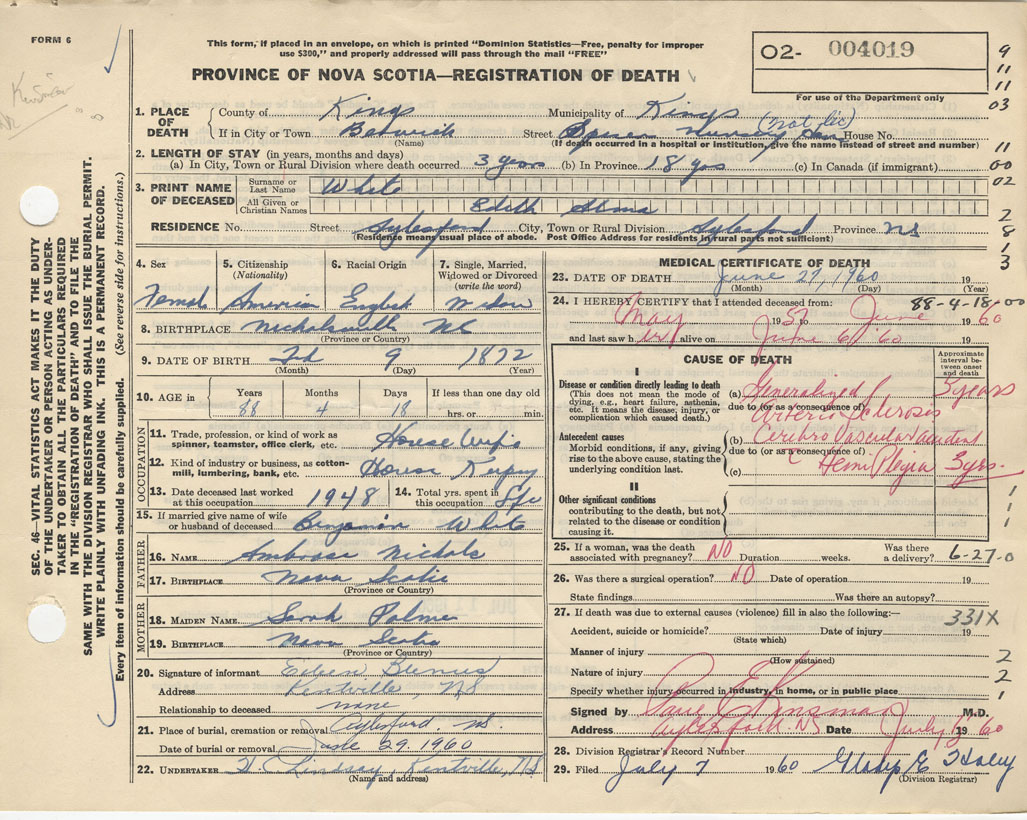 FORM 6
This form, if placed in an envelope, on which is printed "Dominion Statistics—Free, penalty for improper
use $300," and properly addressed will pass through the mail "FREE"
02- 004019
PROVINCE OF NOVA SCOTIA—REGISTRATION OF DEATH
For use of the Department only
9
11
11
03
11
00
02
2
8
1
3
SEC. 46—VITAL STATISTICS ACT MAKES IT THE DUTY
OF THE UNDERTAKER OR PERSON ACTING AS UNDER-
TAKER TO OBTAIN ALL THE PARTICULARS REQUIRED
IN THE "REGISTRATION OF DEATH" AND TO FILE THE
SAME WITH THE DIVISION REGISTRAR WHO SHALL ISSUE THE BURIAL PERMIT.
WRITE PLAINLY WITH UNFADING INK. THIS IS A PERMANENT RECORD.
Every item of information should be carefully supplied. (See reverse side for instructions.)
1. PLACE OF DEATH
County of Kings Municipality of Kings
(not lic)
If in City or Town Berwick Street Nursing House No.
(Name) (If death occurred in a hospital or institution, give the name instead of street and number)
2. LENGTH OF STAY (in years, months and days)
(a) In City, Town or Rural Division where death occurred 3 years (b) In Province 18 yrs (c) In Canada (if immigrant)
3. PRINT NAME OF DECEASED
Surname or Last Name White
All Given or Christian Names Edith Alma
RESIDENCE No. Street Aylesford City, Town or Rural Division Aylesford Province NS
(Residence means usual place of abode. Post Office Address for residents in rural parts not sufficient)
4. Sex 5. Citizenship (Nationality) 6. Racial Origin 7. Single, Married, Widowed or Divorced (write the word)
Female American English Widow
8. BIRTHPLACE Nicholsville NS
(Province or Country)
9. DATE OF BIRTH Feb 9 1872
(Month) (Day) (Year)
10. AGE in Years Months Days If less than one day old
88 4 18 hrs. or min.
OCCUPATION
11. Trade, profession, or kind of work as spinner, teamster, office clerk, etc. House Wife
12. Kind of industry or business, as cotton-mill, lumbering, bank, etc. House Keeping
13. Date deceased last worked at this occupation 1948 14. Total yrs. spent in this occupation Life
15. If married give name of wife or husband of deceased Benjamin White
FATHER
16. NAME Ambrose Nichols
17. BIRTHPLACE Nova Scotia
(Province or Country)
MOTHER
18. MAIDEN NAME Sarah Palmer
19. BIRTHPLACE Nova Scotia
(Province or Country)
20. Signature of informant
Address Kentville, NS
Relationship to deceased none
21. Place of burial, cremation or removal Aylesford NS.
Date of burial or removal June 29. 1960
22. UNDERTAKER Lindsay, Kentville, NS
(Name and address)
MEDICAL CERTIFICATE OF DEATH
23. DATE OF DEATH June 27, 1960 19
(Month) (Day) (Year)
88-4-18-00
24. I HEREBY CERTIFY that I attended deceased from:
May 1957 to June 1960
and last saw her alive on June 6/ '60 19
CAUSE OF DEATH
Approximate interval between onset and death
I
Disease or condition directly leading to death
(This does not mean the mode of dying, e.g., heart failure, asthenia, etc. It means the disease, injury, or complication which caused death.)
(a) Generalized 3 years
due to (or as a consequence of) Arterio Sclerosis
Antecedent causes
Morbid conditions, if any, giving rise to the above cause, stating the underlying condition last.
(b) Cerebro Vascular Accident
due to (or as a consequence of)
(c) Hemi Plegia 3 yrs.
II
Other significant conditions
contributing to the death, but not related to the disease or condition causing it.
1
1
1
25. If a woman, was the death associated with pregnancy? NO Duration weeks. Was there a delivery? 6-27-0
26. Was there a surgical operation? NO Date of operation 19
State findings Was there an autopsy?
27. If death was due to external causes (violence) fill in also the following:—
331X
Accident, suicide or homicide? Date of injury 19
(State which)
Manner of injury 2
(How sustained)
Nature of injury 2
Specify whether injury occurred in industry, in home, or in public place 1
Signed by Paul E Kinsman M.D.
Address Aylesford NS Date July 1960
28. Division Registrar's Record Number
29. Filed July 7 1960 Gladys E Haley
(Division Registrar)